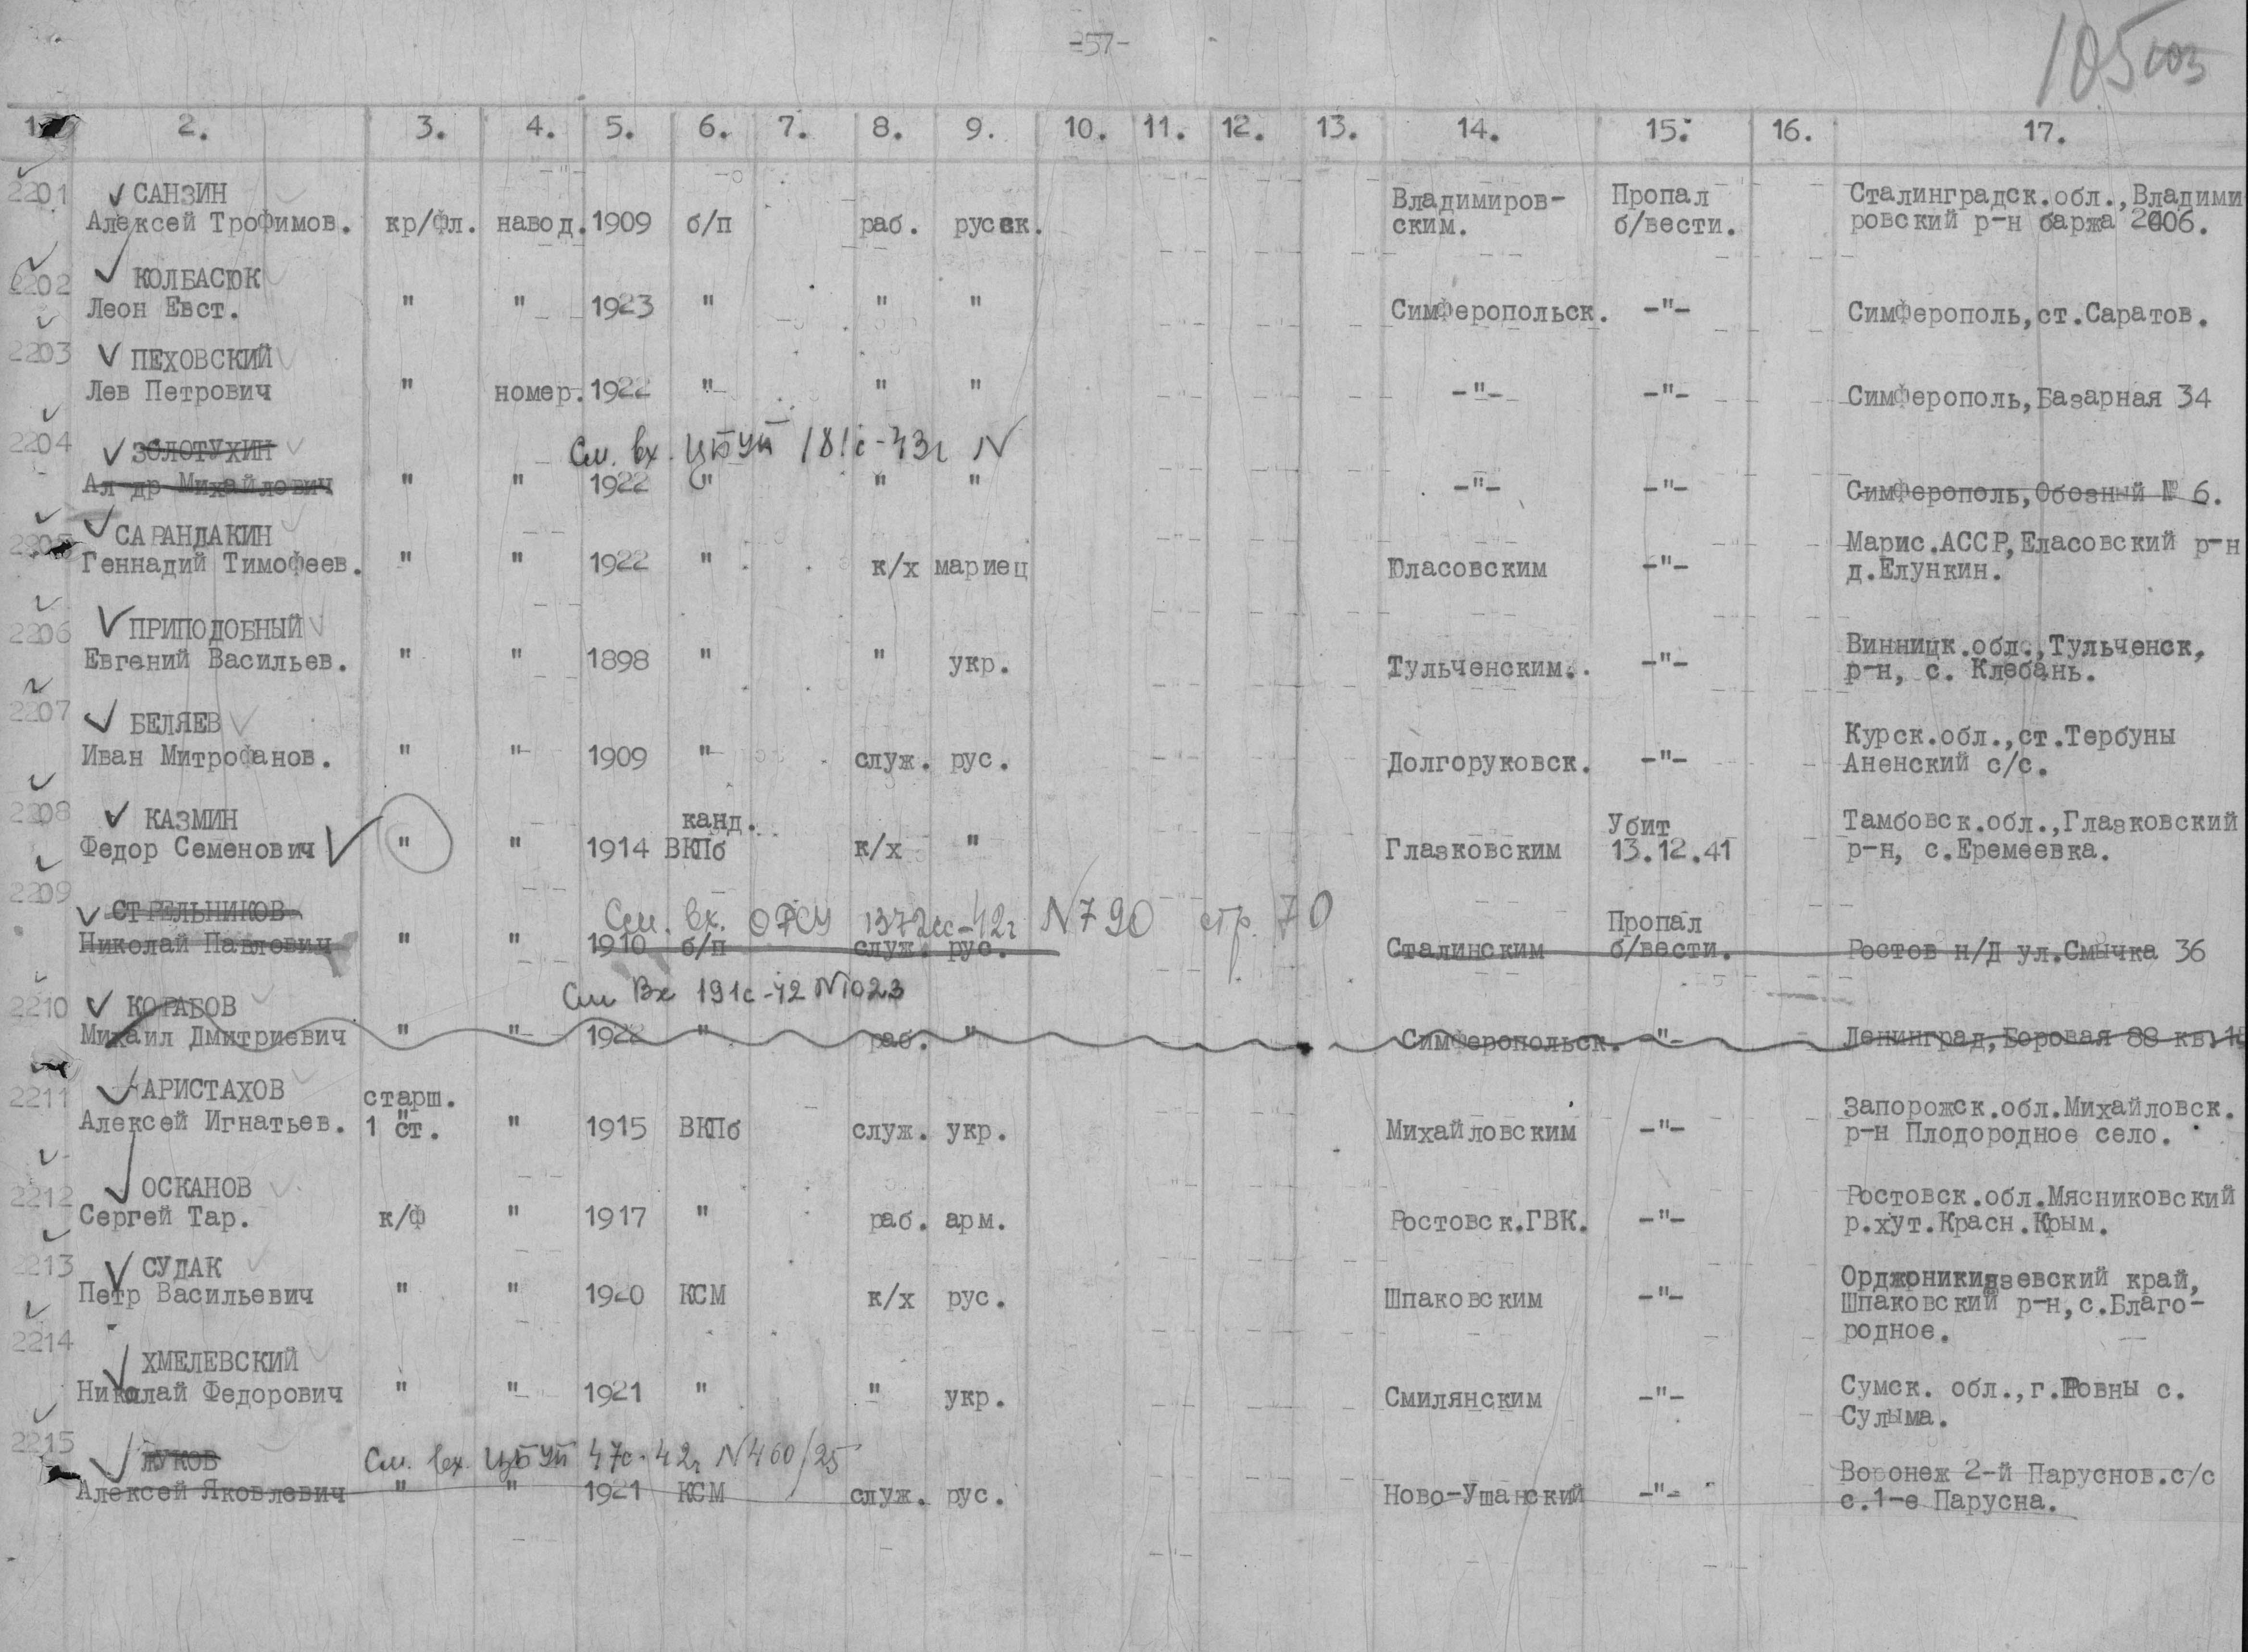 -57-
105 103
1. 2. 3. 4. 5. 6. 7. 8. 9. 10. 11. 12. 13. 14. 15. 16. 17.
2201 САНЗИН Владимиров- Пропал Сталинградск.обл.,Владими
Алексей Трофимов. кр/фл. навод. 1909 б/п раб. русск. ским. б/вести. ровский р-н баржа 2006.
2202 КОЛБАСЮК
Леон Евст. " " 1923 " " " Симферопольск. -"- Симферополь,ст.Саратов.
2203 ПЕХОВСКИЙ
Лев Петрович " номер. 1922 " " " -"- -"- Симферополь,Базарная 34
2204 ЗОЛОТУХИН См. вх. ЦБУП 181с-43г N
Ал-др Михайлович " " 1922 " " " -"- -"- Симферополь,Обозный № 6.
2205 САРАНДАКИН Марис.АССР,Еласовский р-н
Геннадий Тимофеев. " " 1922 " к/х мариец Юласовским -"- д.Елункин.
2206 ПРИПОДОБНЫЙ Винницк.обл.,Тульченск,
Евгений Васильев. " " 1898 " " укр. Тульченским. -"- р-н, с. Клебань.
2207 БЕЛЯЕВ Курск.обл.,ст.Тербуны
Иван Митрофанов. " " 1909 " служ. рус. Долгоруковск. -"- Аненский с/с.
2208 КАЗМИН канд. Убит Тамбовск.обл.,Глазковский
Федор Семенович " " 1914 ВКПб к/х " Глазковским 13.12.41 р-н, с.Еремеевка.
2209 СТРЕЛЬНИКОВ См. вх. ОРСУ 1372сс-42г N790 стр. 70 Пропал
Николай Павлович " " 1910 б/п служ. рус. Сталинским б/вести. Ростов н/Д ул.Смычка 36
2210 КОРАБОВ См Вх 191с-42 N1023
Михаил Дмитриевич " " 1922 " раб. " Симферопольск. -"- Ленинград,Боровая 88 кв.
2211 АРИСТАХОВ старш. Запорожск.обл.Михайловск.
Алексей Игнатьев. 1 ст. " " 1915 ВКПб служ. укр. Михайловским -"- р-н Плодородное село.
2212 ОСКАНОВ Ростовск.обл.Мясниковский
Сергей Тар. к/ф " 1917 " раб. арм. Ростовск.ГВК. -"- р.хут.Красн.Крым.
2213 СУДАК Орджоникидзевский край,
Петр Васильевич " " 1920 КСМ к/х рус. Шпаковским -"- Шпаковский р-н,с.Благо-
родное.
2214 ХМЕЛЕВСКИЙ
Николай Федорович " " 1921 " " укр. Смилянским -"- Сумск. обл.,г.Ровны с.
Сулыма.
2215 ЖУКОВ См. вх. ЦБУП 47с-42г N460/25 Воронеж 2-й Паруснов.с/с
Алексей Яковлевич " " 1921 КСМ служ. рус. Ново-Ушанский -"- с.1-е Парусна.